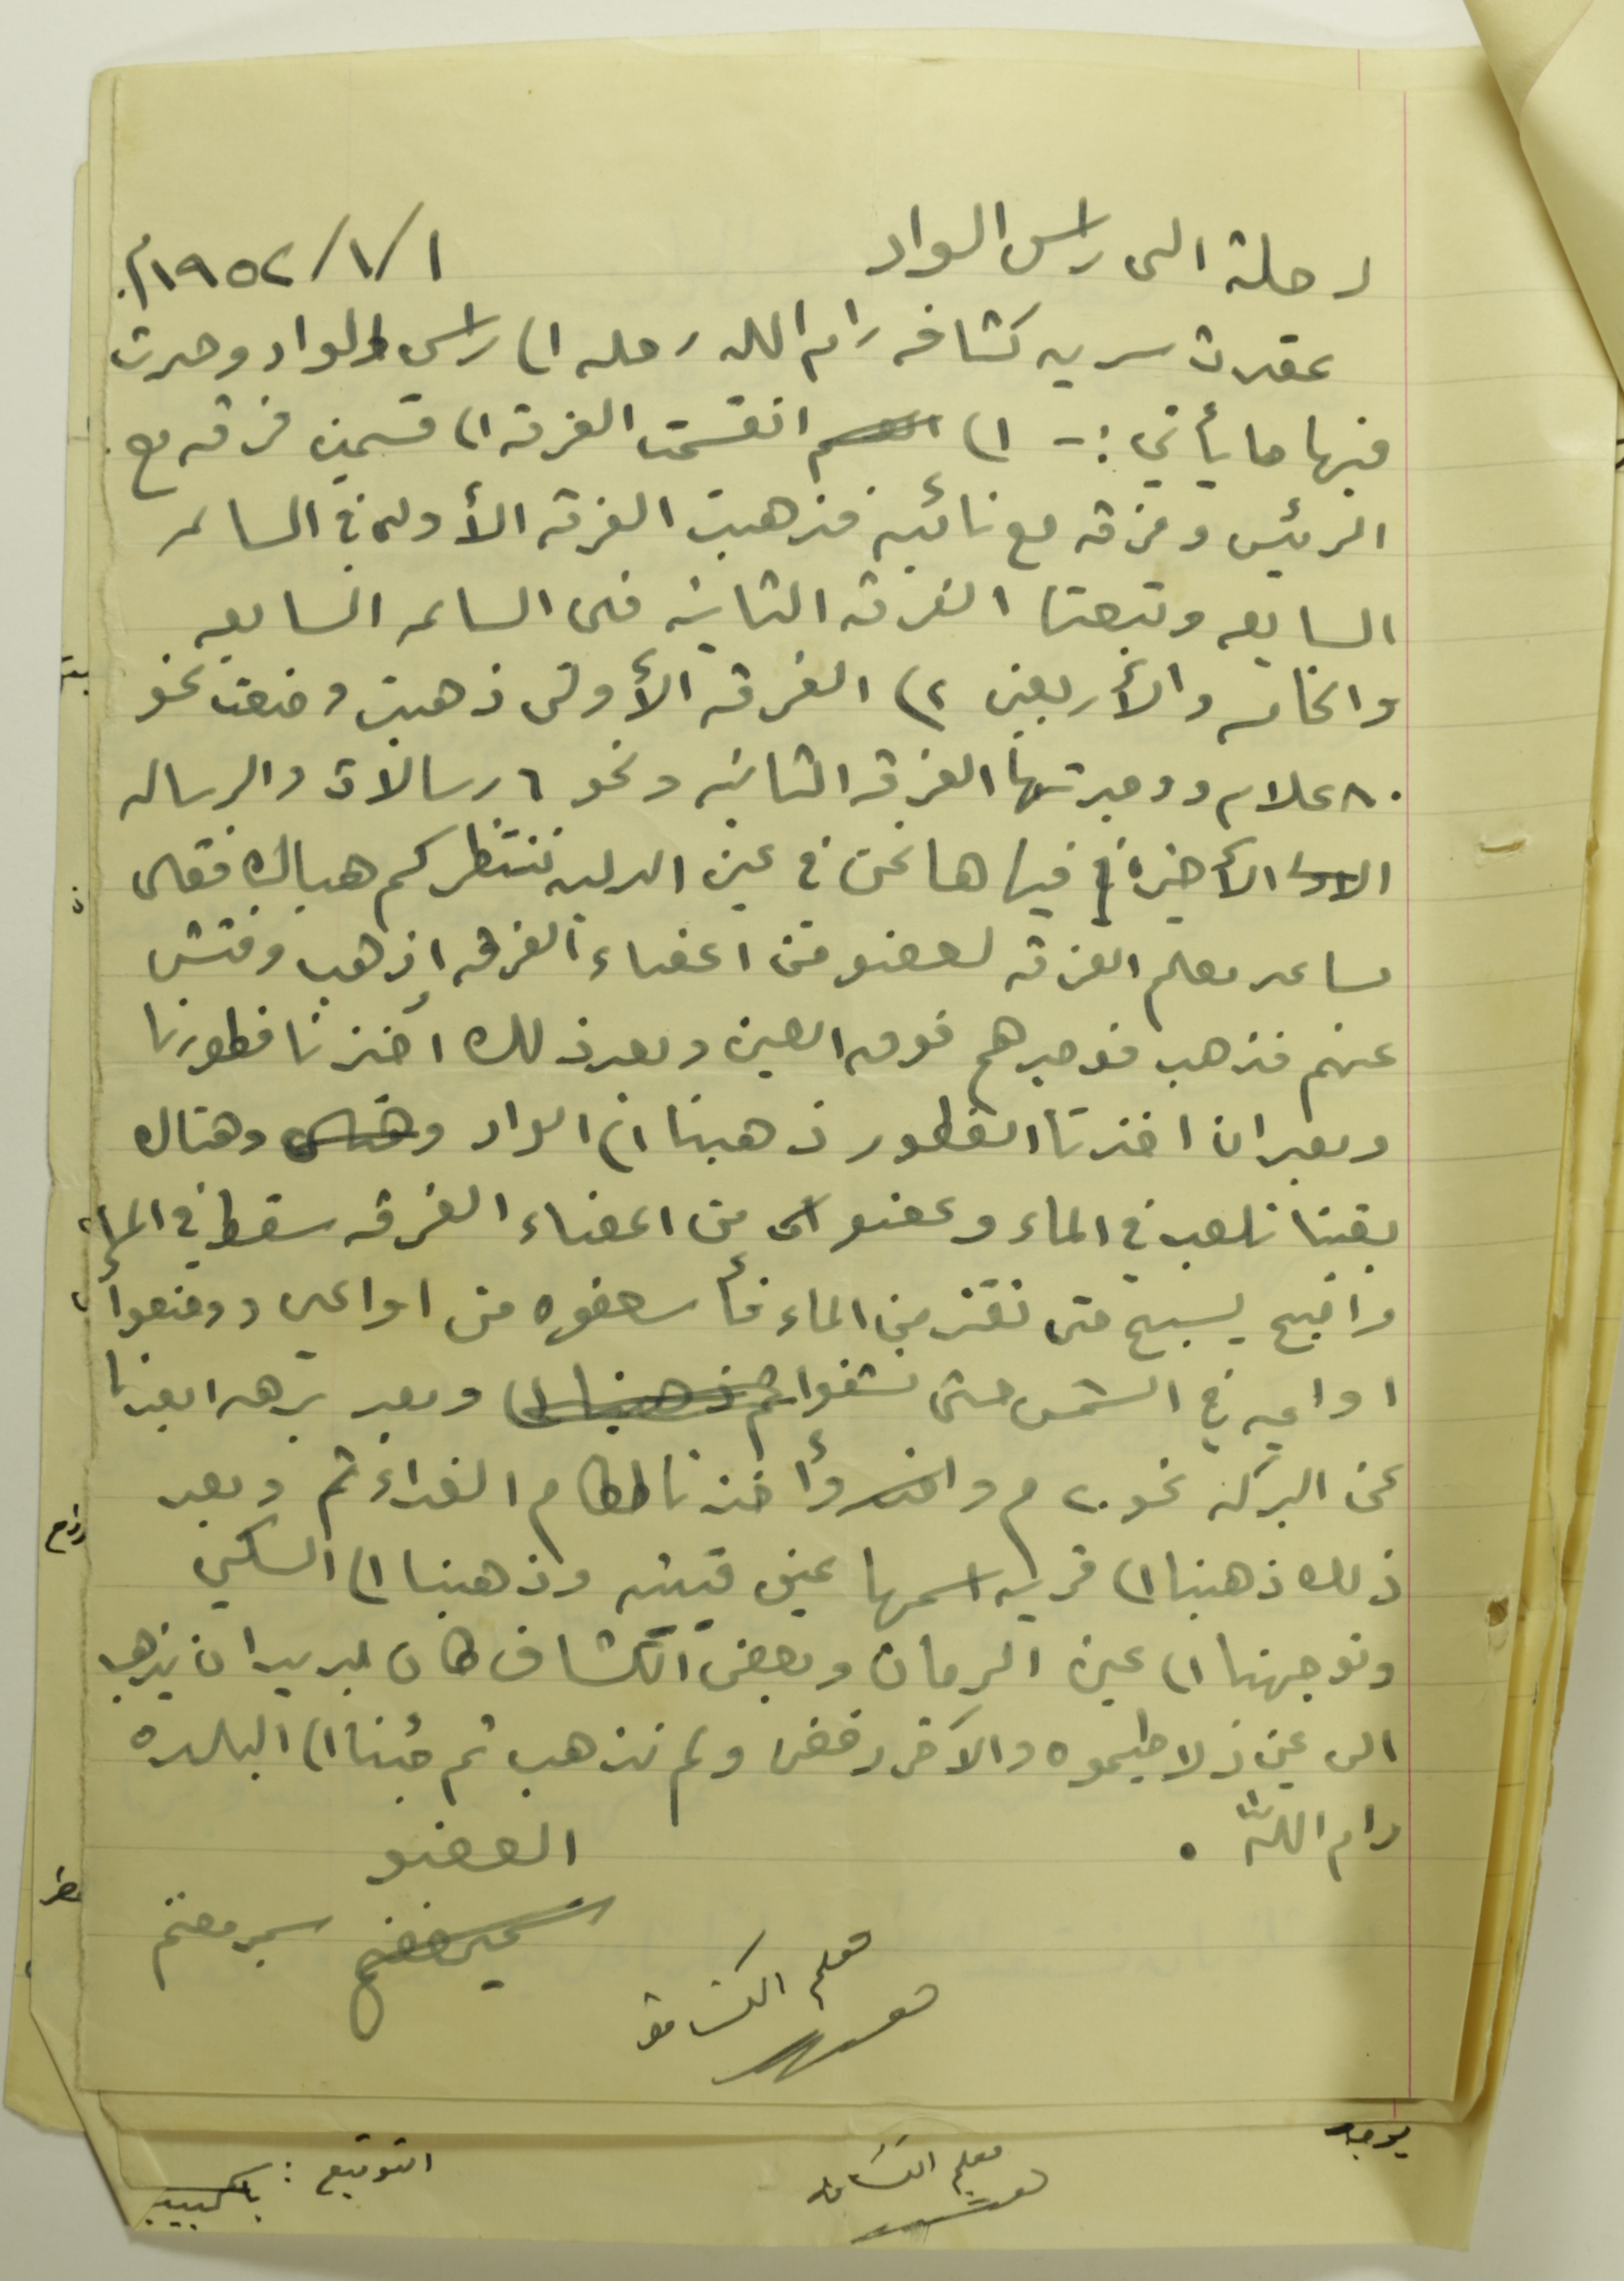 رحلة الى راس الواد ١/١/١٩٥٢م.
عقدت سريه كشافه رام الله رحله الى راس الواد وجرت
فيها ما يأتي :- ١) انقسمت الفرقه الى قسمين فرقه مع
الرئيس وفرقه مع نائبه فذهبت الفرقه الأولى في الساعه
السابعه وتبعتنا الفرقه الثانيه في الساعه السابعه
والخامسه والأربعين ٢) الفرقه الأولى ذهبت وضعت نحو
٨٠ علام ووجدتها الفرقه الثانيه ونحو ٦ رسالات والرساله
الأخيرة فيها ها نحن في عين ننتظركم هناك فقال
مساعد معلم الفرقه لعضو من اعضاء الفرقه اذهب وفتش
عنهم فذهب فوجدهم فوق العين وبعد ذلك أخذنا فطورنا
وبعد ان اخذنا الفطور ذهبنا الى الواد وهناك
بقينا نلعب في الماء وعضو من اعضاء الفرقه سقط في الماء
واصبح يسبح حتى نقذ من الماء فأسعفوه من اواعي ووضعوا
اواعيه في الشمس حتى نشفوا وبعد برهه ابعدنا
عن البركه نحو ٢٠ م وأخذنا طعام الغداء ثم وبعد
ذلك ذهبنا الى قريه اسمها عين قينيه وذهبنا الى
وتوجهنا الى عين الرمان وبعض الكشاف كان يريد ان يذهب
الى عين والآخر رفض ولم نذهب ثم جئنا الى البلده
رام الله .
العضو
سمير
معلم الكشافة
يوجد
معلم الكشافه
التوقيع :